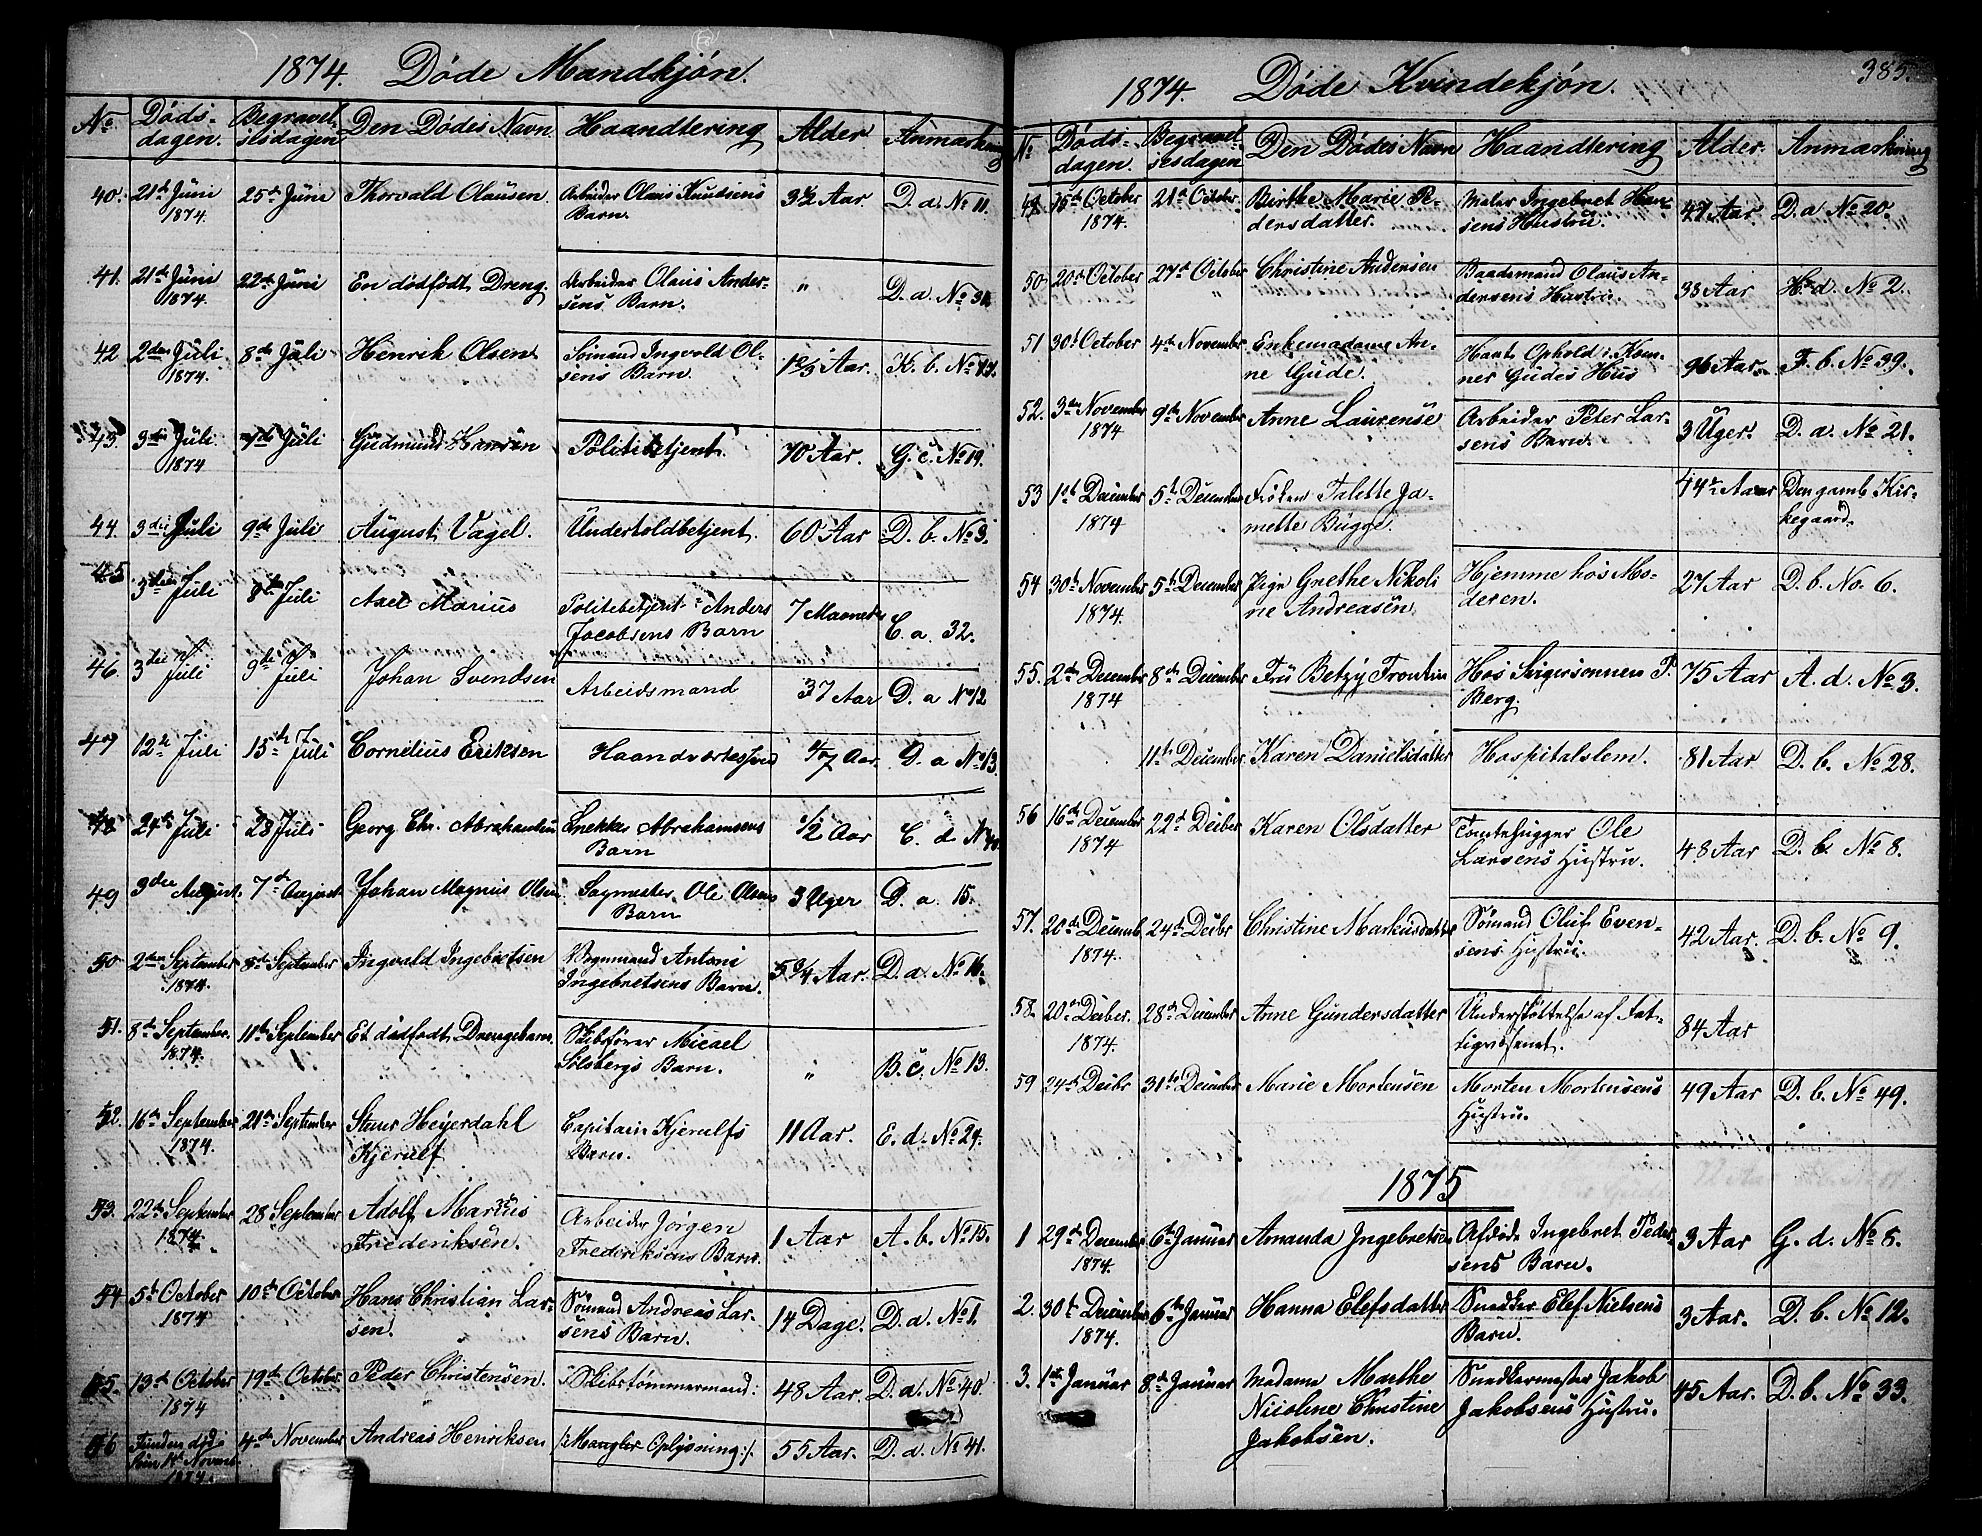 1874. Döde Mandkjön.
No Döds- dagen. Begravel- sesdagen Den Dödes Navn Haandtering Alder Anmærkning
40. 21de Juni 1874. 25de Juni Thorvald Olausen. Arbeider Olaus Knudsens Barn. 3½ Aar D. a. No 11.
41. 21de Juni 1874. 22de Juni En dödfödt Dreng. Arbeider Olaus Ander- sens Barn. " D. a. No 31.
42 2den Juli 1874. 8de Juli Henrik Olsen Sömand Ingvold Ol- sens Barn. 1⅔ Aar. K. b. No
43. 3die Juli 1874 7de Juli Gudmund Hansen Politibetjent. 70 Aar. G. c. No 19.
44. 3die Juli 9de Juli August Vagel. Undertoldbetjent. 60 Aar D. b. No 3.
45 3die Juli 8de Juli Axel Marius Politibetjent Anders Jacobsens Barn 7 Maaneder C. a. 32.
46. 3die Juli 9de Juli Johan Svendsen Arbeidsmand 37 Aar D. a No 12
47 12te Juli 15de Juli Cornelius Eriksen Haandverkssvend Aar. D. a No 13.
48 24de Juli 28 Juli Georg Chr. Abrahamsen Snekker Abrahamsens Barn ½ Aar C. d No 40.
49 3die August. 7de August Johan Magnus Olsen Sagmester Ole Olsens Barn 3 Uger D. a. 15.
50 2den September 1874. 8de September Ingvald Ingebretsen Vognmand Antoni Ingebretsens Barn. 5¾ Aar. D. a. No 16.
51. 8de September. 1874. 11te September Et dödfödt Drengebarn. Skibsförer Micael Solsbergs Barn. " B. c. No 13.
52. 16de September 1874. 21de September Steur Heyerdahl Kjerulf Capitain Kjerulfs Barn. 11 Aar. E. d. No 29.
53. 22de September 1874. 28 September Adolf Marius Frederiksen. Arbeider Jörgen Frederiksens Barn. 1 Aar A. b. No 15.
54 5te October 1874 10de October Hans Christian Lar- sen. Sömand Andreas Lar- sens Barn. 14 Dage. D. a. No 1.
55. 13de October 1874 19de October Peder Christensen. Skibstömmermand. 48 Aar D. a. No 40.
56 Funden död 1874. 4de November Andreas Henriksen /: Mangler Oplysning :/. 55 Aar. D. a. No 41.
1874. Döde Kvindekjön. 385.
No Döds- dagen. Begravel- sesdagen Den Dödes Navn Haandtering Alder. Anmærkning
49. 15de October 1874. 21de October. Birthe Marie Pe- dersdatter. Maler Ingebret Han- sens Hustru. 47 Aar D. a No 20.
50. 20de October 27de October Christine Andersen Baadsmand Olaus An- dersens Hustru. 38 Aar H. d. No 2.
51 30te October 4de November Enkemadame An- ne Gude. Havt Ophold i Kom- ner Gudes Hus 96 Aar. F. b. No 39.
52. 3die November 1874 9de November Anne Laurense Arbeider Peter Lar- sens Barn. 3 Uger. D. a. No 21.
53 1ste December 1874 5te December Fröken Talette Ja- mette Bugge. 44 Aar Den gamle Kir- kegaard.
54 30te November 1874. 5te December Pige Grethe Nikoli ne Andreasen. Hjemme hos Mo- deren. 27 Aar D. b. No. 6.
55. 2den December 1874 8de December Fru Betzy Frontin Hos Svigersönnen T. Berg. 75 Aar A. d. No 3.
11te December. Karen Danielsdatter Hospitalslem. 81 Aar D. b. No 28.
56 16de December 1874 22de Decber Karen Olsdatter Tomtehugger Ole Larsens Hustru. 48 Aar D. b. No 8.
57. 20de Decemb. 1874. 24de Decbr Christine Markusdatter Sömand Oluf Even- sens Hustru. 42 Aar. D. b. No 9.
58. 20de Decber. 1874. 28de December Anne Gundersdatter Understöttelse af Fat- tigvæsenet. 84 Aar
59 24de Decbr 31te December Marie Mortensen Morten Mortensens Hustru. 49 Aar D. b. No 49.
1875
1 29de December 1874. 6te Januar Amanda Ingebretsen Afdöde Ingebret Peder- sens Barn. 3 Aar G. d. No 8.
2. 30te December 1874. 6te Januar Hanna Elefsdatter Snedker Elef Nielsens Barn. 3 Aar. D. b. No 12.
3. 1ste Januar 8de Januar Madame Marthe Nicoline Christine Jakobsen. Snedkermester Jakob Jakobsens Hustru. 45 Aar. D. b. No 33.